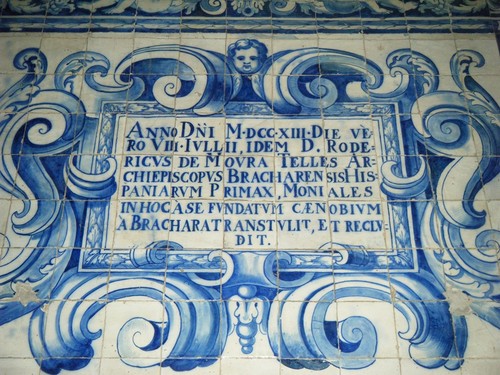 ANNO DN̄I M·DCC·XIII·DIE VÈ
RO VIII·IVLLII, IDEM D. RODE-
RICVS DE MOVRA TELLES AR-
CHIEPISCOPVS BRACHARENSIS HIS-
PANIARVM PRIMAX, MONIALES
IN HOC ASE FVNDATVM CÆNOBIVM
A BRACHARA TRANSTVLIT, ET RECLV-
DIT.